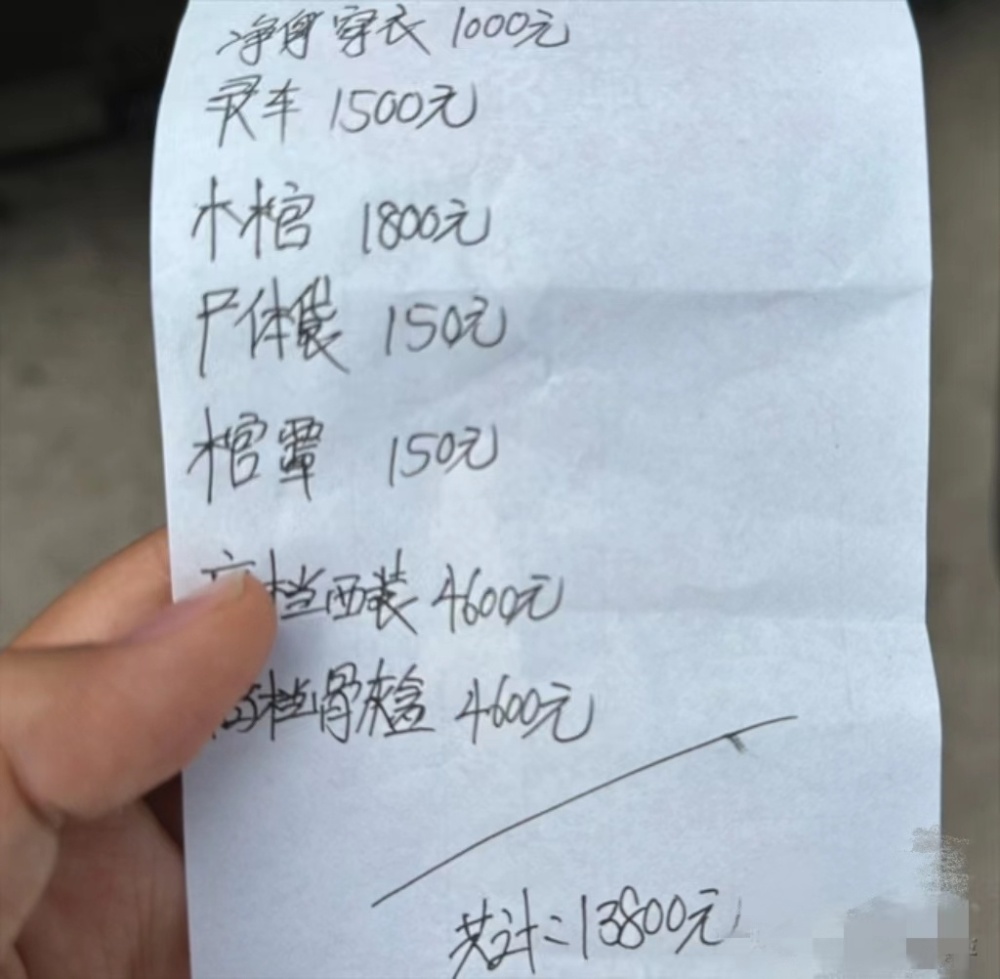 净身穿衣 1000元
灵车 1500元
木棺 1800元
尸体袋 150元
棺罩 150元
高档西装 4600元
高档骨灰盒 4600元
共计：13800元